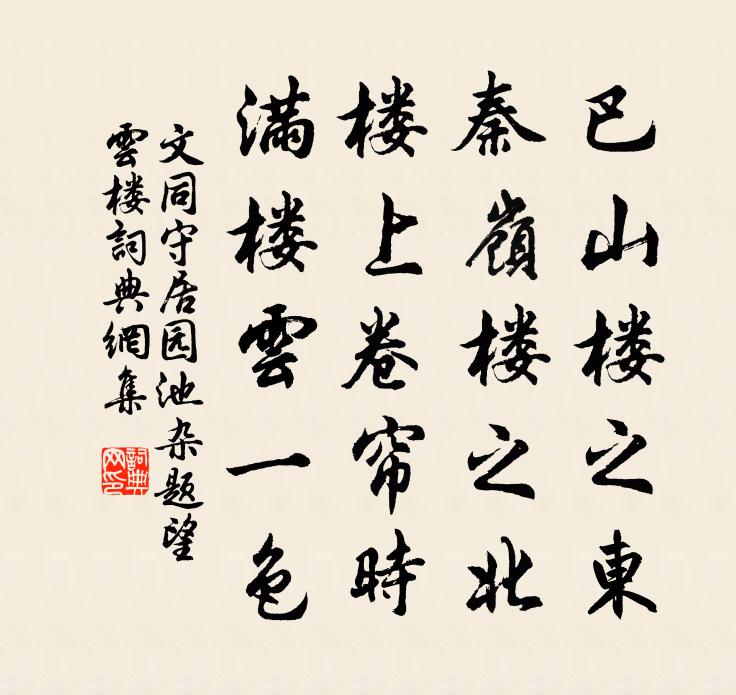 巴山楼之東
秦嶺楼之北
楼上卷帘時
满楼雲一色
文同守居园池杂题望
雲楼詞典網集
詞典
网印